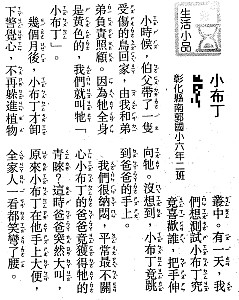 生活小品
小布丁
彰化縣南郭國小六年二班
小時候，伯父帶了一隻
受傷的鳥回家，由我和弟
弟負責照顧。因為牠全身
是黃色的，我們就叫牠「
小布丁」。
幾個月後，小布丁才卸
下警覺心，不再躲進植物
叢中。有一天，我
們想測試小布丁究
竟喜歡誰，把手伸
向牠。沒想到，小布丁竟跳
到爸爸的手上。
我們很納悶，平常最不關
心小布丁的爸爸竟獲得牠的
青睞？這時爸爸突然大叫，
原來小布丁在他手上大便，
全家人一看都笑彎了腰。